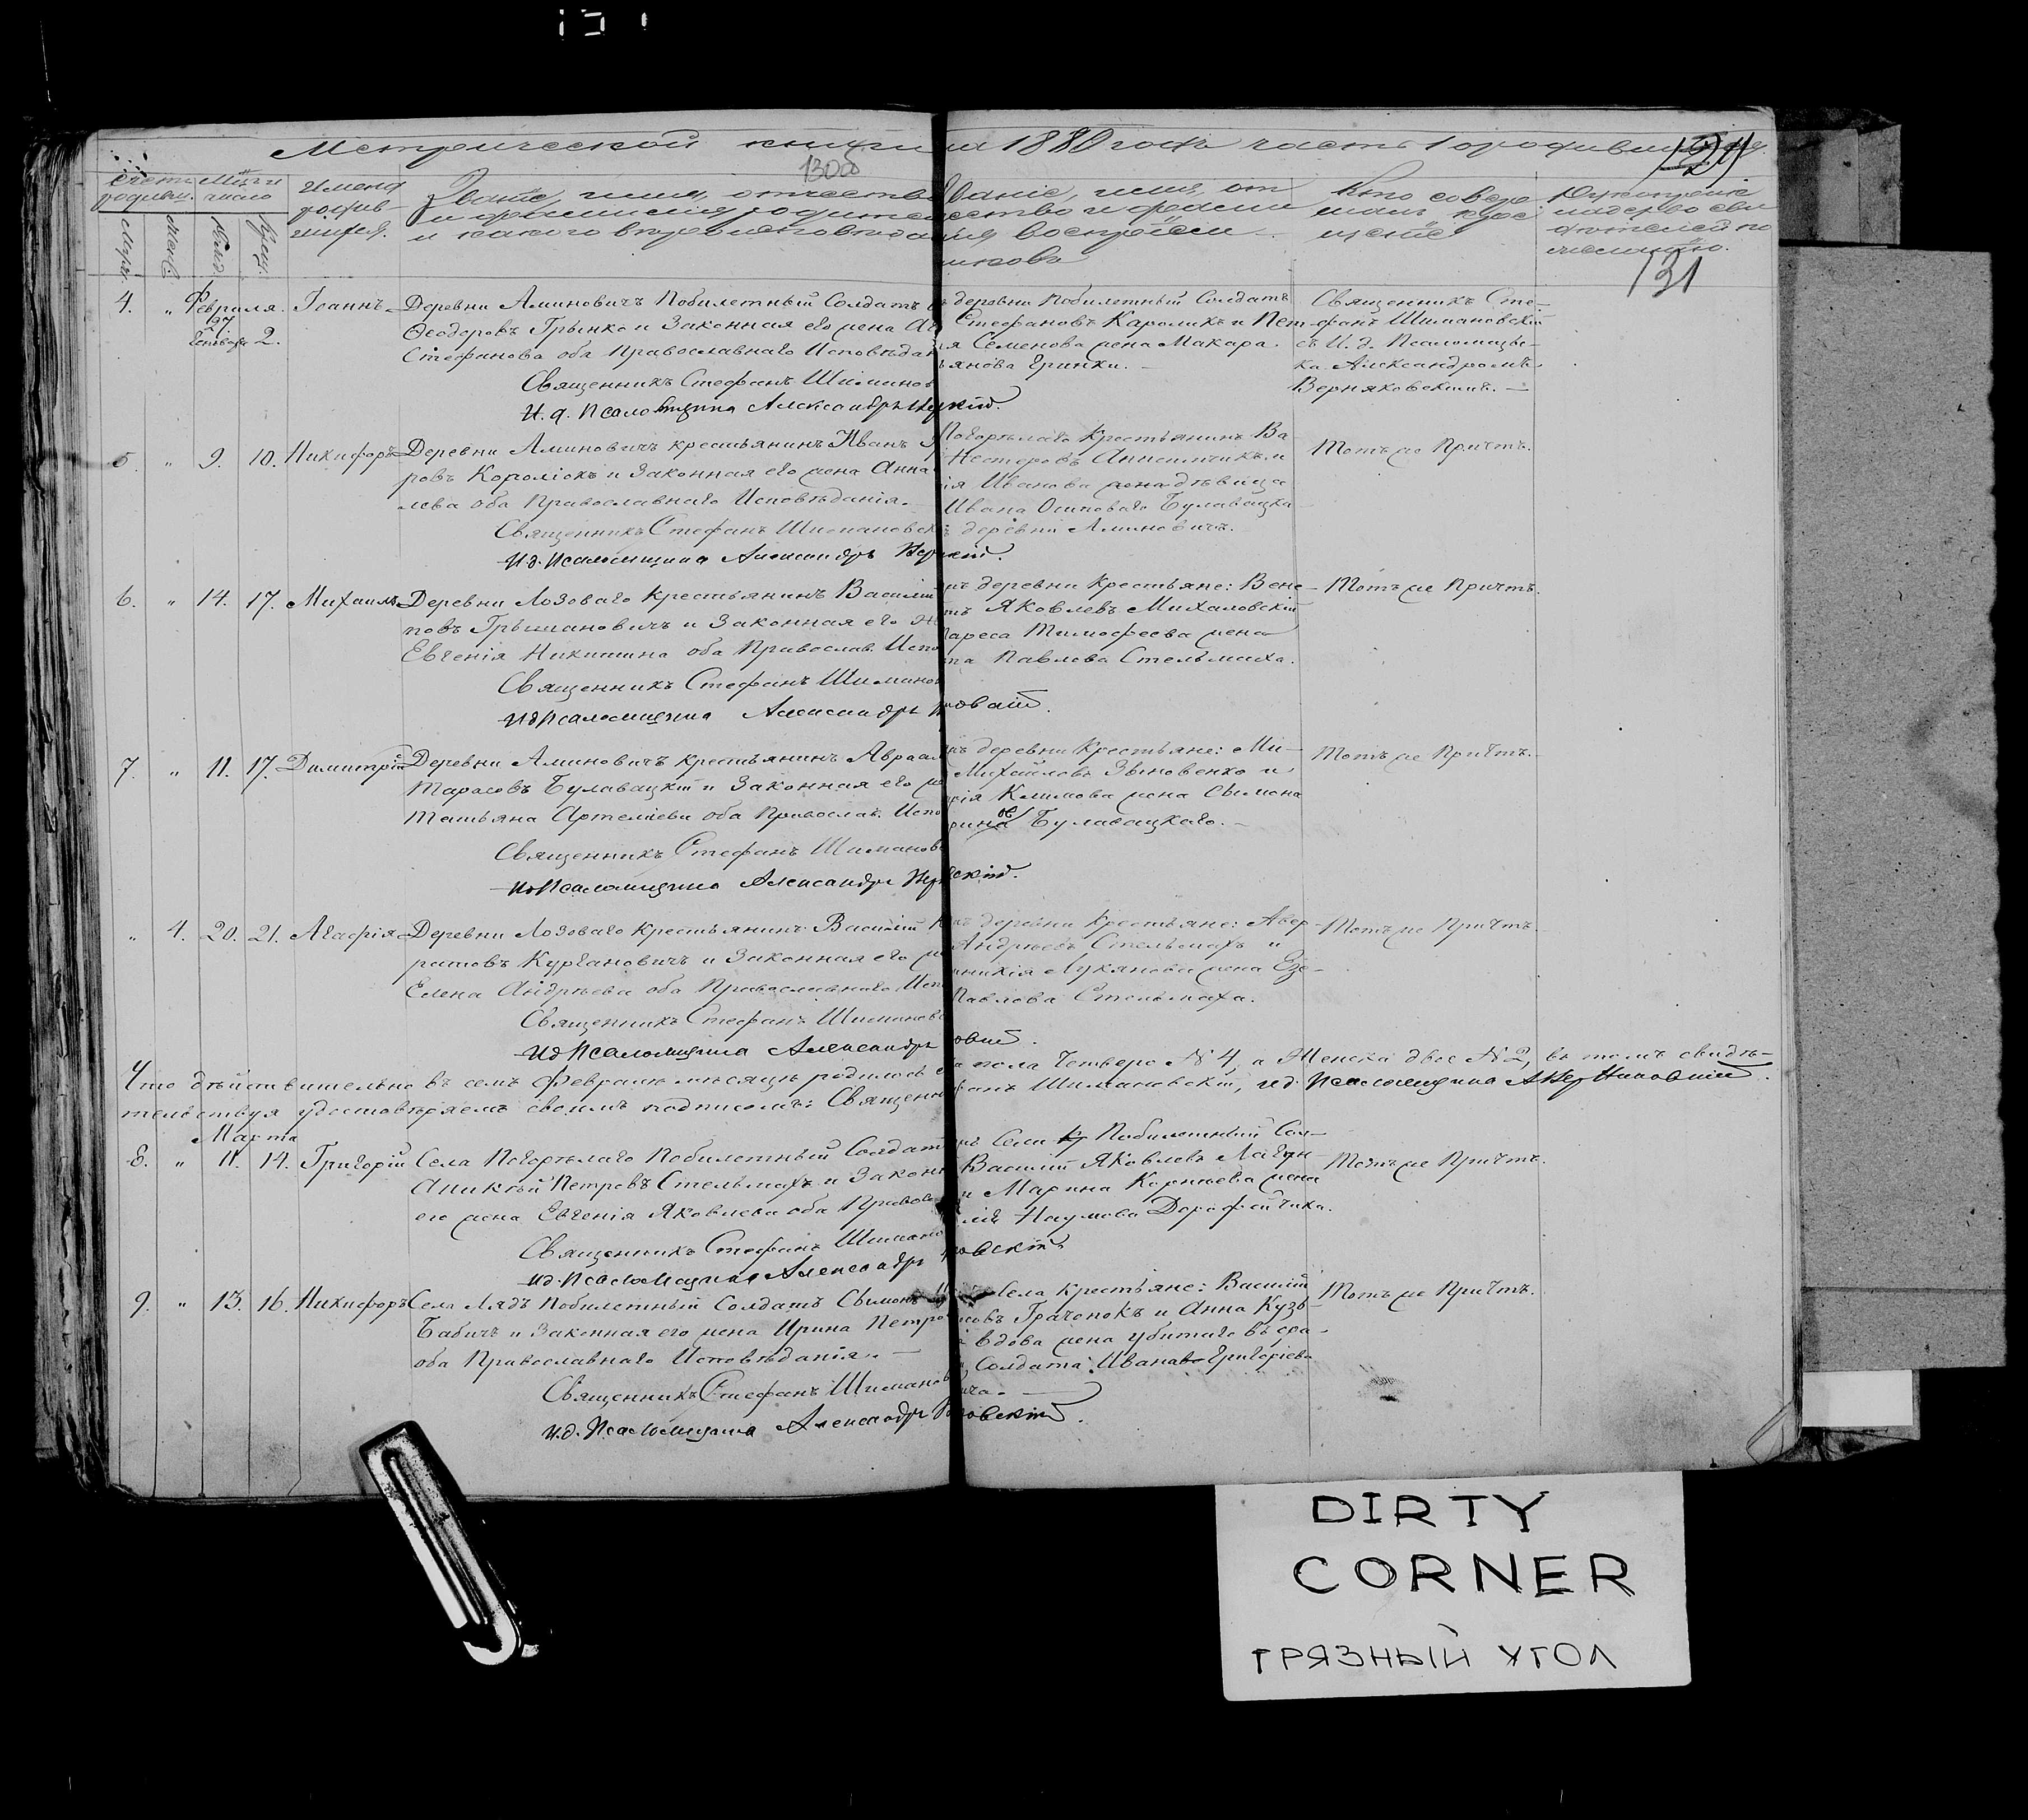 Метрической книги на 1880 годъ часть 1 о родившихся.
130об
131
Счетъ родивш.
Мѣсяцъ и число
Имена родив-
шихся.
Званіе, имя, отчество
и фамилія родителей
и какого вѣроисповѣданія
Званіе, имя, от
чество и фамилія
воспріем
никовъ
Кто совер
шалъ кре
щеніе
Рукоприкл
адство сви
дѣтелей по
желанію.
Мужс.
Женс.
Рожд.
Крещ.
4. " Февраля. Іоаннъ Деревни Аминовичъ Побилетный Солдатъ
27 Генваря 2. Ѳеодоровъ Грынко и Законная его жена
Стефанова оба Православнаго Исповѣдан
Священникъ Стефанъ Шиманов
И. д. Псаломщика Александръ
деревни Побилетный Солдатъ
Стефановъ Кароликъ и
Семенова жена Макара.
Гринки.
Священникъ Сте-
фанъ Шимановскій
съ И. д. Псаломщи-
ка Александромъ
Верняковскимъ.
5. " 9. 10. Никифоръ Деревни Аминовичъ крестьянинъ Иванъ
ровъ Королюкъ и Законная его жена Анна
лева оба Православнаго Исповѣданія.
Священникъ Стефанъ Шимановск
И.д. Псаломщика Александръ Вер
Погорѣлаго Крестьянинъ Ва
Нестеровъ и
Иванова жена дѣвица
Ивана Осипова Булавацка
деревни Аминовичъ.
Тотъ же Причтъ.
6. " 14. 17. Михаилъ Деревни Лозоваго Крестьянинъ Василій
повъ Грышановичъ и Законная его ж
Евгенія Никитина оба Православ. Испо
Священникъ Стефанъ Шиманов
И.д. Псаломщика Александръ
деревни Крестьяне: Вене-
Яковлевъ Михаловскій
Тимофеева жена
Павлова Стельмаха.
Тотъ же Причтъ.
7. " 11. 17. Димитрій Деревни Аминовичъ крестьянинъ Авраам
Тарасовъ Булавацкій и Законная его ж
Татьяна Артеміева оба Православ. Испо
Священникъ Стефанъ Шиманов
И.д. Псаломщика Александръ Вер
деревни Крестьяне: Ми-
Михайловъ Звиновенко и
Климова жена Сымона
Булавацкаго.
Тотъ же Причтъ.
" 4. 20. 21. Агафія Деревни Лозоваго Крестьянинъ Василій
ратовъ Кургановичъ и Законная его ж
Елена Андрѣева оба Православнаго Исп
Священникъ Стефанъ Шиманов
И.д. Псаломщика Александръ
деревни Крестьяне: Авер-
Андрѣевъ Стельмахъ и
Лукянова жена
Павлова Стельмаха.
Тотъ же Причтъ.
Что дѣйствительно въ семъ Февралѣ мѣсяцѣ родилось пола Четверо №4, а Женска двое №2, въ томъ свидѣ-
тельствуя удостовѣряемъ своимъ подписомъ: Священникъ Стефанъ Шимановскій, и.д. Псаломщика А Верниковскій.
Марта
8. " 11. 14. Григорій Села Погорѣлаго Побилетный Солдат
Аникѣй Петровъ Стельмахъ и Законн
его жена Евгенія Яковлева оба Правосл
Священникъ Стефанъ Шимано
И.д. Псаломщика Александръ
Села Побилетный Сол-
Василій Яковлевъ
и Марина Корнѣева жена
Наумова Дорофейчика.
Тотъ же Причтъ.
9. " 13. 16. Никифоръ Села Лядъ Побилетный Солдатъ Сымонъ
Бабичъ и Законная его жена Ирина Петро
оба Православнаго Исповѣданія.
Священникъ Стефанъ Шиманов
И.д. Псаломщика Александръ
Села крестьяне: Василій
Граченокъ и Анна Кузь-
вдова жена убитаго въ сра-
Солдата Ивана Григоріева
Тотъ же Причтъ.
DIRTY
CORNER
ГРЯЗНЫЙ УГОЛ